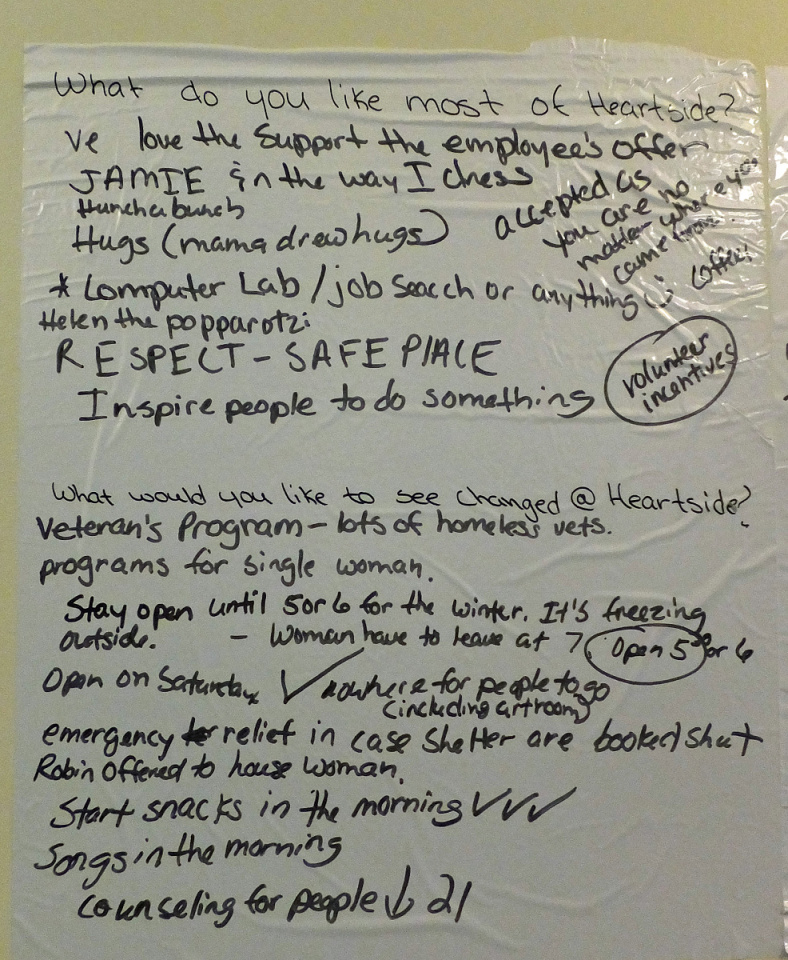 What do you like most of Heartside?
ve love the Support the employee's offer
JAMIE in the way I dress
accepted as
you are no
matter where you
came from.
Hugs (mama drew hugs)
coffee!
* Computer Lab / job search or anything
Helen the popparotzi
RESPECT - SAFE PlACE
volunteer
incentives
Inspire people to do something
What would you like to see changed @ Heartside?
Veteran's Program - lots of homeless vets.
programs for single woman.
Stay open until 5 or 6 for the winter. It's freezing
outside. - Woman have to leave at 7. Open 5 or 6
Open on Saturday ✓ nowhere for people to go
(including artroom)
emergency relief in case shelter are booked/shut
Robin Offered to house woman.
Start snacks in the morning ✓✓✓
Songs in the morning
counseling for people ↓ 21